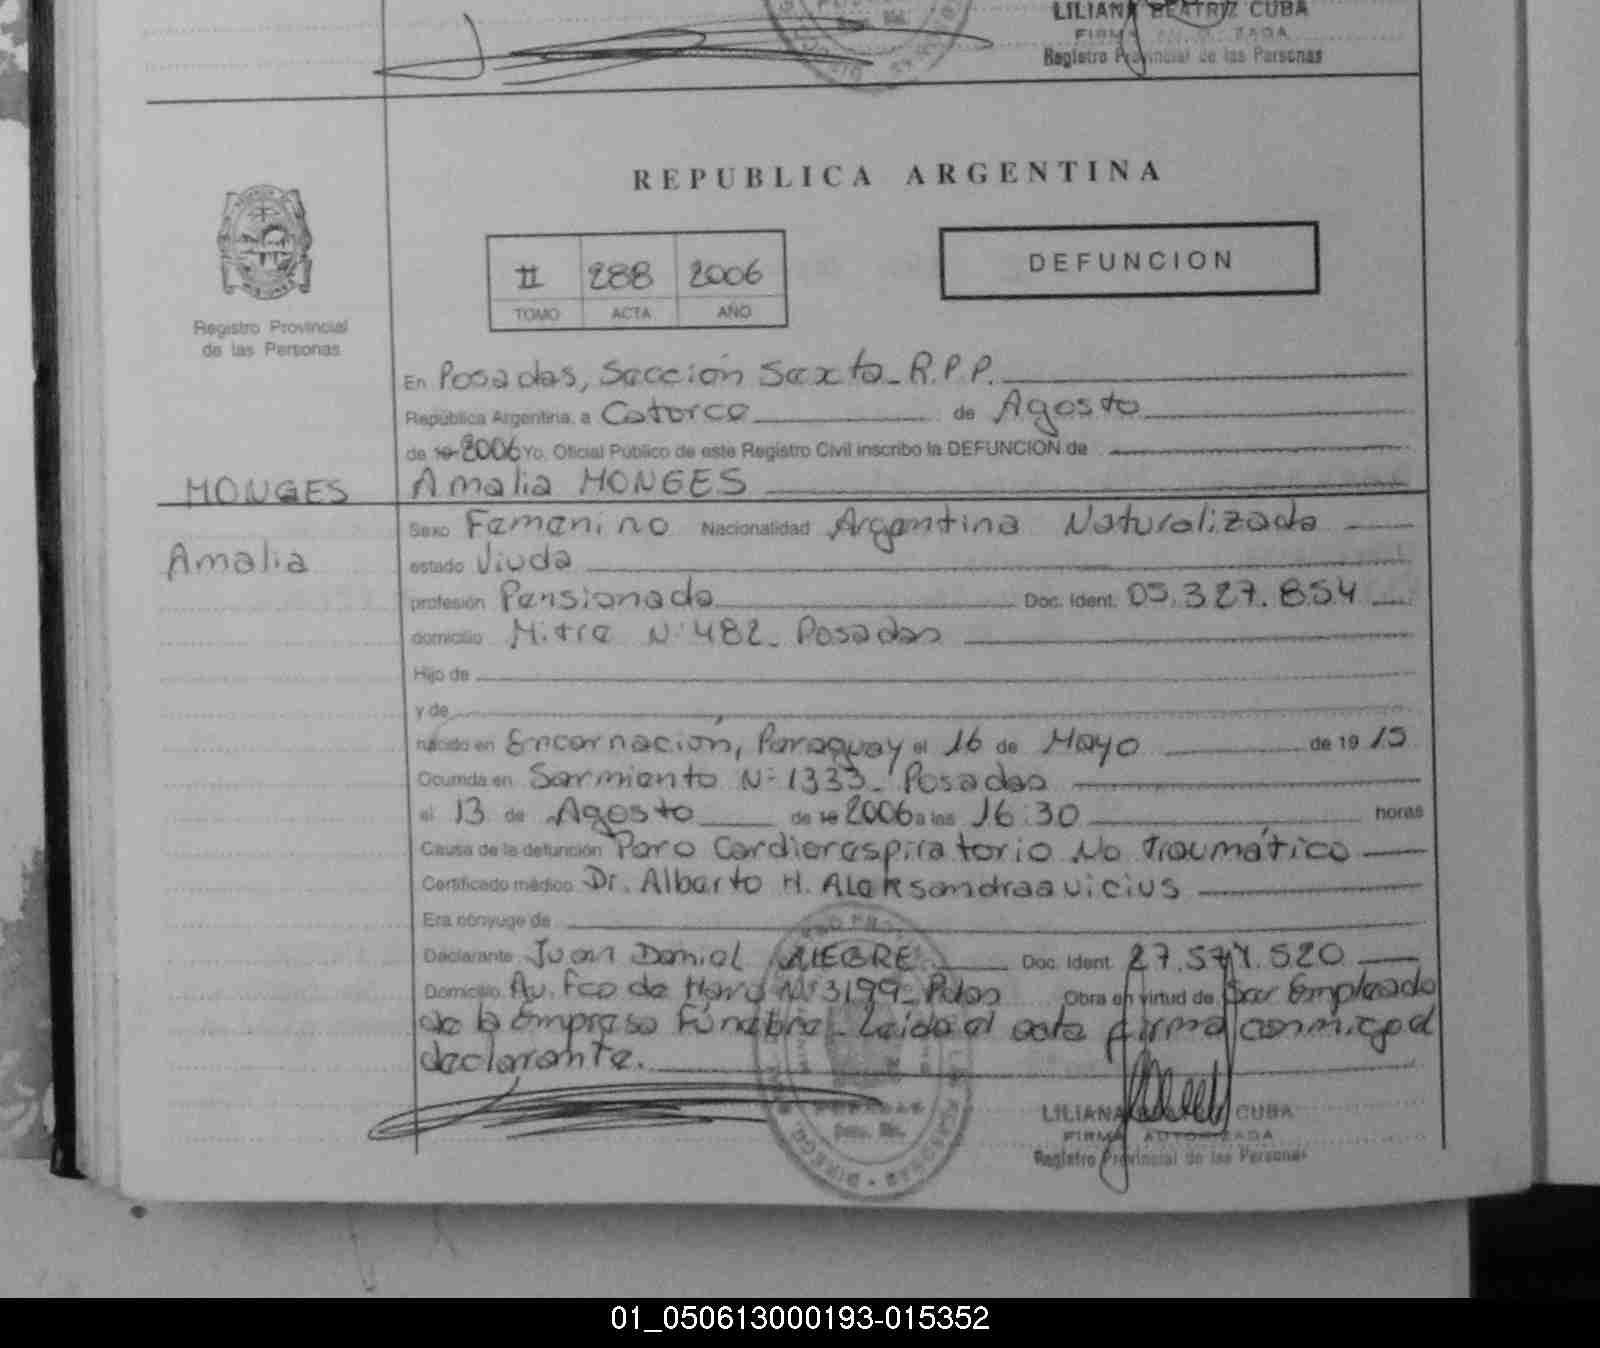 LILIANA BEATRIZ CUBA
Registro Provincial de las Personas
REPUBLICA ARGENTINA
II 288 2006
TOMO ACTA AÑO
DEFUNCION
Registro Provincial
de las Personas
En Posadas, Sección Sexta_ R.P.P.
República Argentina, a Catorce de Agosto
de 19 2006 Yo, Oficial Público de este Registro Civil inscribo la DEFUNCION de
MONGES
Amalia MONGES
Amalia
Sexo Femenino Nacionalidad Argentina Naturalizada
estado Viuda
profesión Pensionada Doc. Ident. 05.327.854
domicilio Mitre Nº 482_ Posadas
Hijo de
y de
nacido en Encarnación, Paraguay el 16 de Mayo de 19 15
Ocurrida en Sarmiento Nº 1333_ Posadas
el 13 de Agosto de 19 2006 a las 16:30 horas
Causa de la defunción Paro Cardiorespiratorio No Traumático
Certificado médico Dr. Alberto H. Aleksandraavicius
Era cónyuge de
Declarante Juan Daniel Doc. Ident. 27.574.520
Domicilio Av. Fco de Haro Nº 3199_ Pdas Obra en virtud de Ser Empleado
de la Empresa Fúnebre_ Leida el acta firma conmigo el
declarante.
LILIANA CUBA
FIRMA AUTORIZADA
Registro Provincial de las Personas
01_050613000193-015352